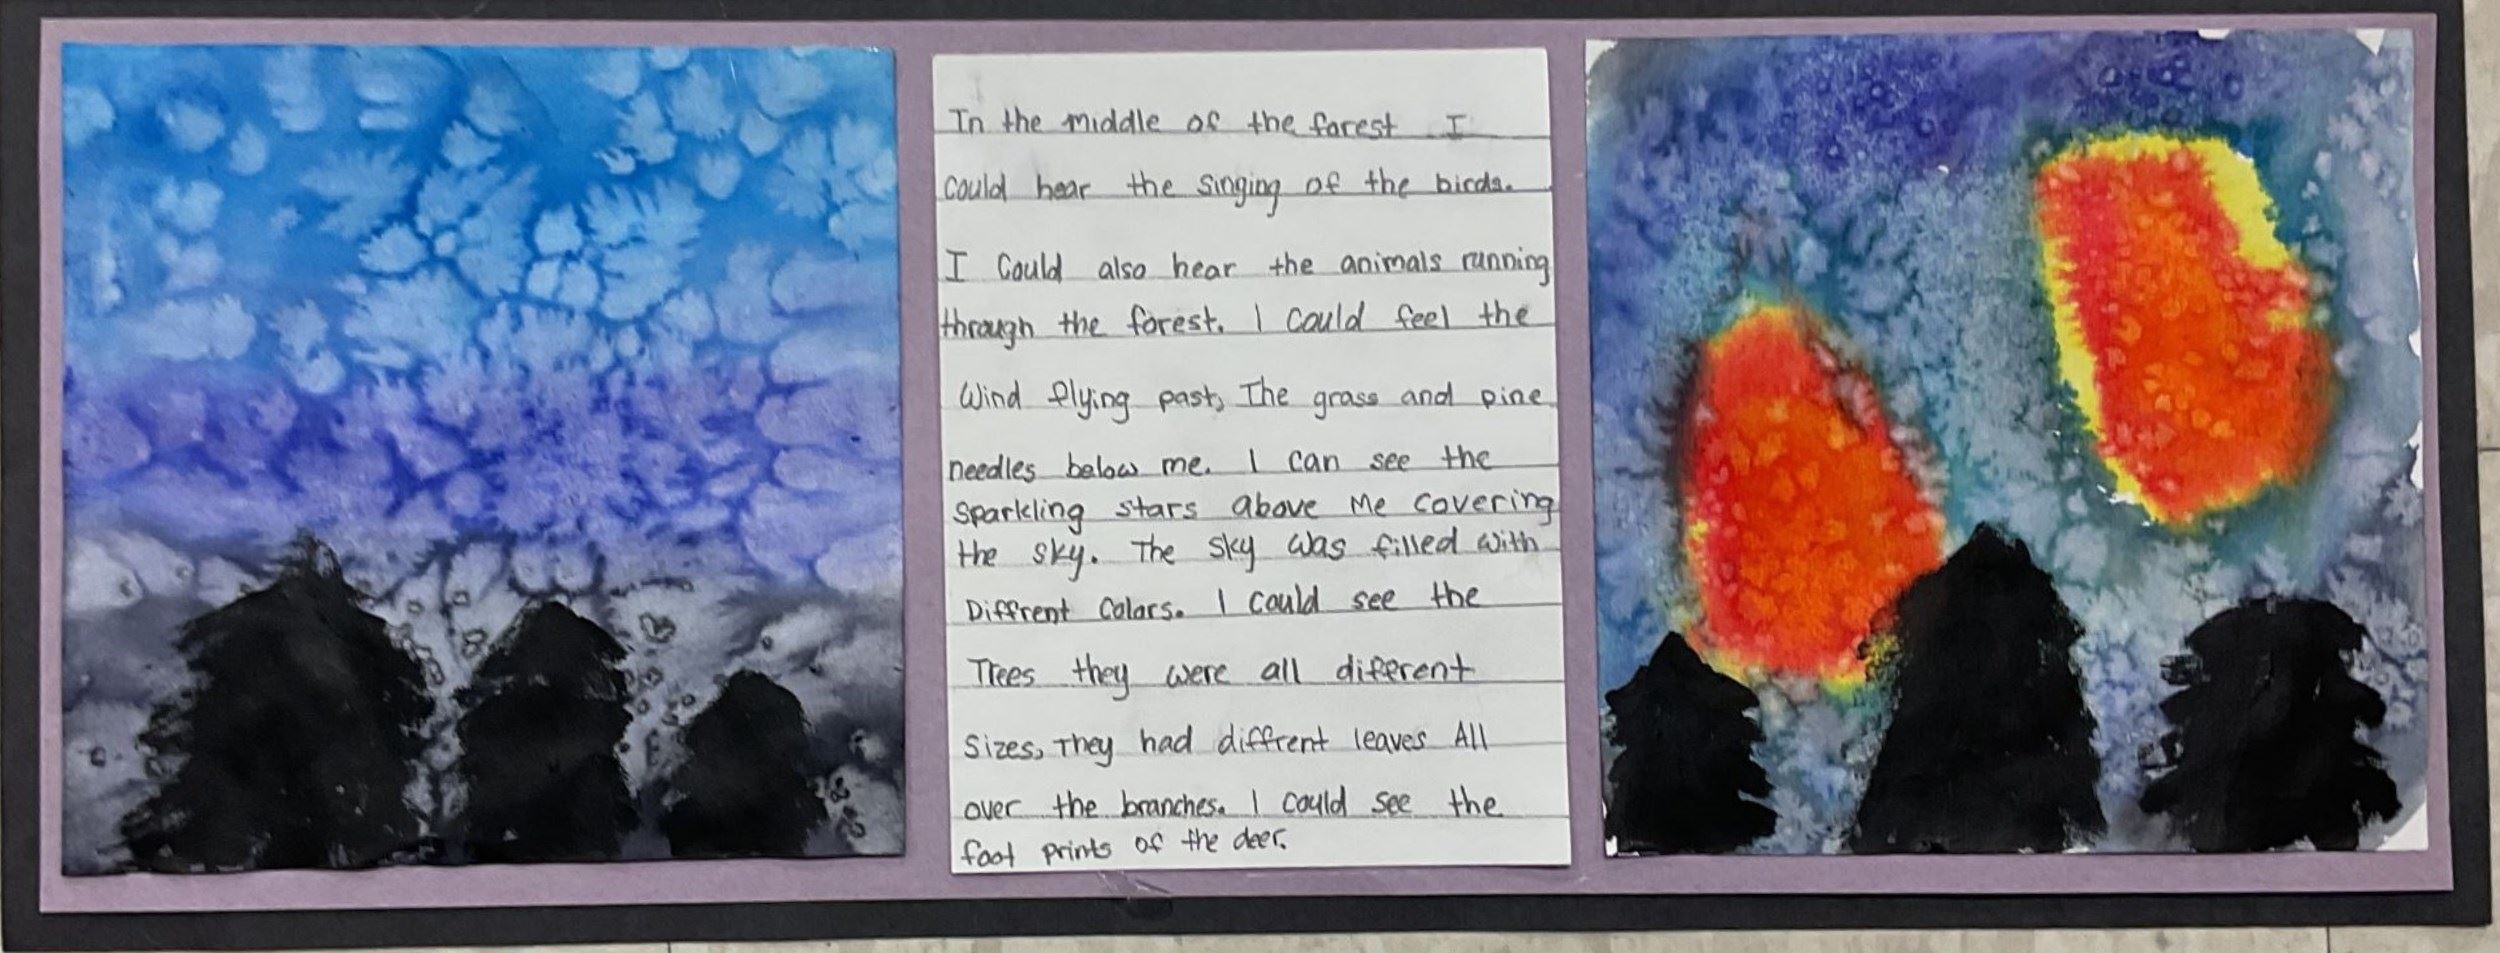 In the middle of the forest I
could hear the singing of the birds.
I Could also hear the animals running
through the forest. I could feel the
Wind flying past, The grass and pine
needles below me. I can see the
Sparkling stars above Me covering
the sky. The sky was filled with
Diffrent Colors. I could see the
Trees they were all different
Sizes, They had diffrent leaves All
over the branches. I could see the
foot prints of the deer.